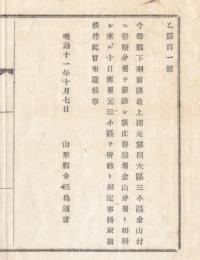 乙第百一號
今般縣下羽前國最上郡元第四大區三小區金山村
ニ警察分署ヲ新設シ新庄警察署金山分署ト相稱
シ來ル十日開署元三小區ヲ所轄ト相定事務取扱
候條此旨布達候事
明治十一年十月七日
山形縣令三島通庸